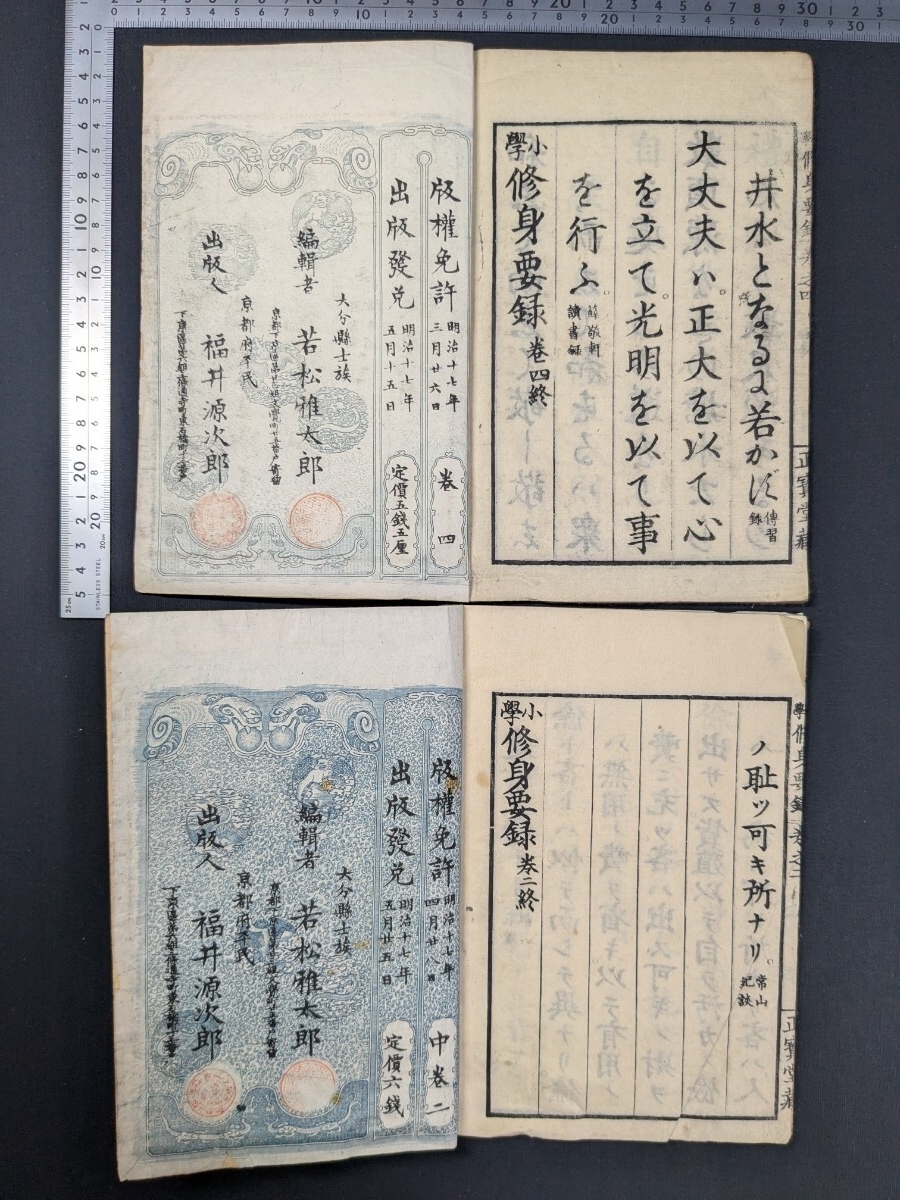 井水となるに若かず 傳習録
大丈夫ハ。正大を以て心
を立て。光明を以て事
を行ふ。薛敬軒讀書録
小學修身要録 卷四終
正寳堂藏
版權免許 明治十七年三月廿六日 卷四
出版發兌 明治十七年五月十五日 定價五錢五厘
大分縣士族
編輯者 若松雅太郎
京都府平民
出版人 福井源次郎
ノ耻ツ可キ所ナリ。常山紀談
小學修身要録 卷二終
正寳堂藏
版權免許 明治十七年四月廿八日 中卷二
出版發兌 明治十七年五月廿五日 定價六錢
大分縣士族
編輯者 若松雅太郎
京都府平民
出版人 福井源次郎
STAINLESS STEEL